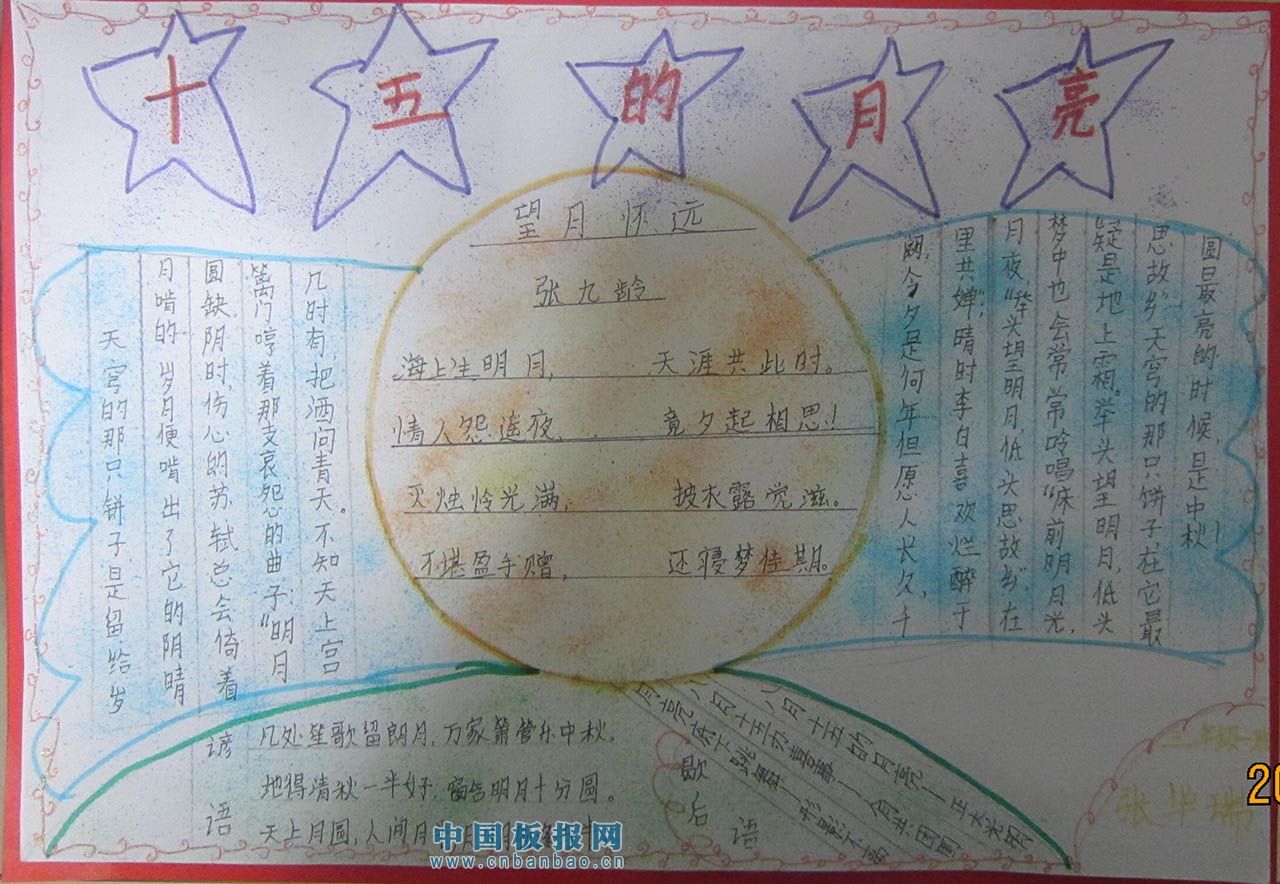 十五的月亮
望月怀远
张九龄
海上生明月, 天涯共此时。
情人怨遥夜, 竟夕起相思!
灭烛怜光满, 披衣露觉滋。
不堪盈手赠, 还寝梦佳期。
天穹的那只饼子,是留给岁
月啃的,岁月便啃出了它的阴晴
圆缺阴时,伤心的苏轼总会倚着
篱门哼着那支哀怨的曲子:"明月
几时有,把酒问青天。不知天上宫
阙,今夕是何年但愿人长久,千
里共婵",晴时李白喜欢烂醉于
月夜,"举头望明月,低头思故乡"在
梦中也会常常吟唱"床前明月光,
疑是地上霜。举头望明月,低头
思故乡"天穹的那只饼子在它最
圆最亮的时候,是中秋!
谚语
几处笙歌留朗月,万家箫管乐中秋。
地得清秋一半好,窗含明月十分圆。
天上月圆,人间月
歇后语
八月十五的月亮——正大光明
八月十五办喜事——人月共团圆
月亮底下
二年级一
张华瑞
20
中国板报网
www.cnbanbao.cn